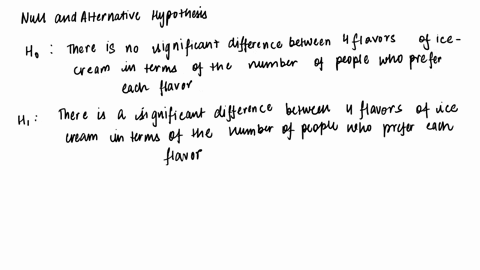 Null and Alternative Hypothesis
H₀ : There is no significant difference between 4 flavors of ice-
cream in terms of the number of people who prefer
each flavor
H₁ : There is a significant difference between 4 flavors of ice
cream in terms of the number of people who prefer each
flavor